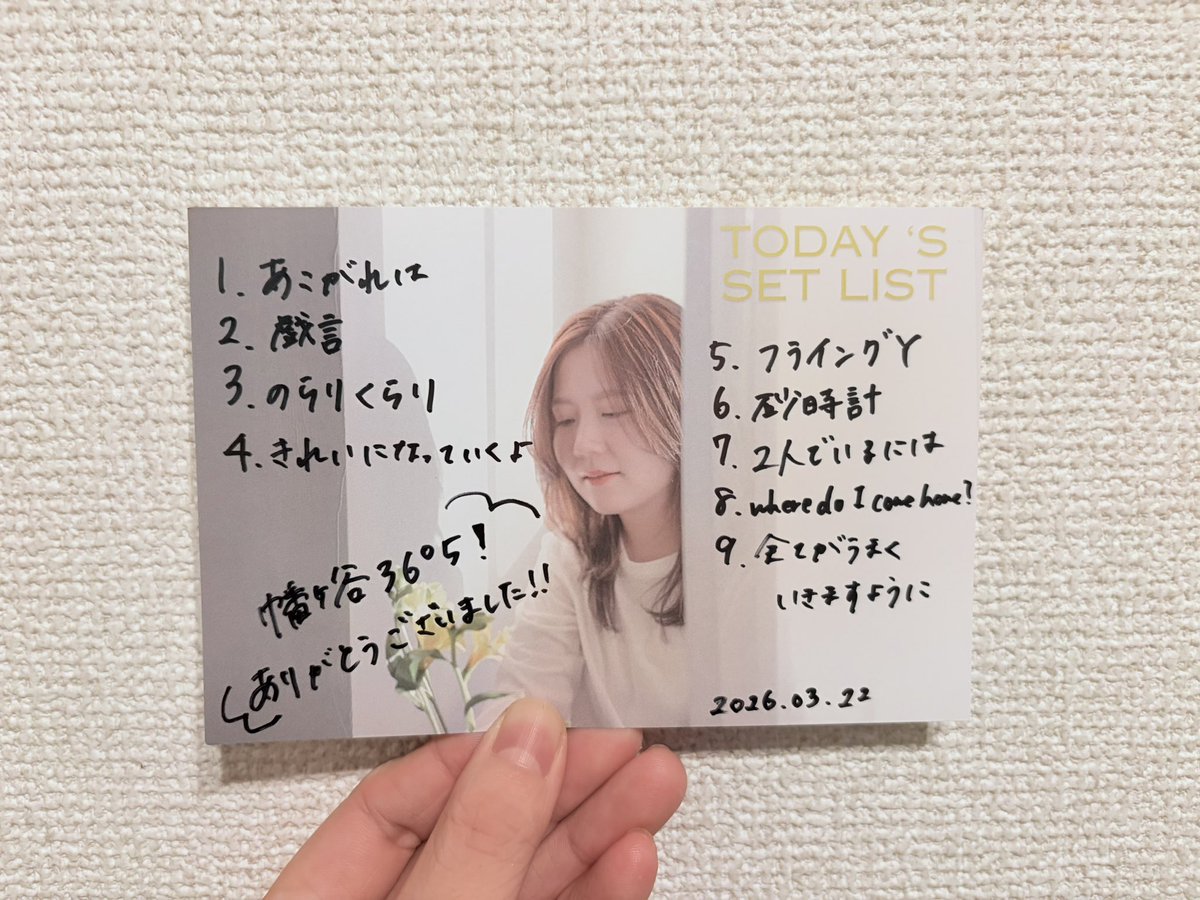 TODAY 'S
SET LIST
1. あこがれは
2. 戯言
3. のらりくらり
4. きれいになっていくよ
5. フライングY
6. 砂時計
7. 2人でいるには
8. where do I come home?
9. 全てがうまく
いきますように
幡ヶ谷36°5!
ありがとうございました!!
2026.03.22